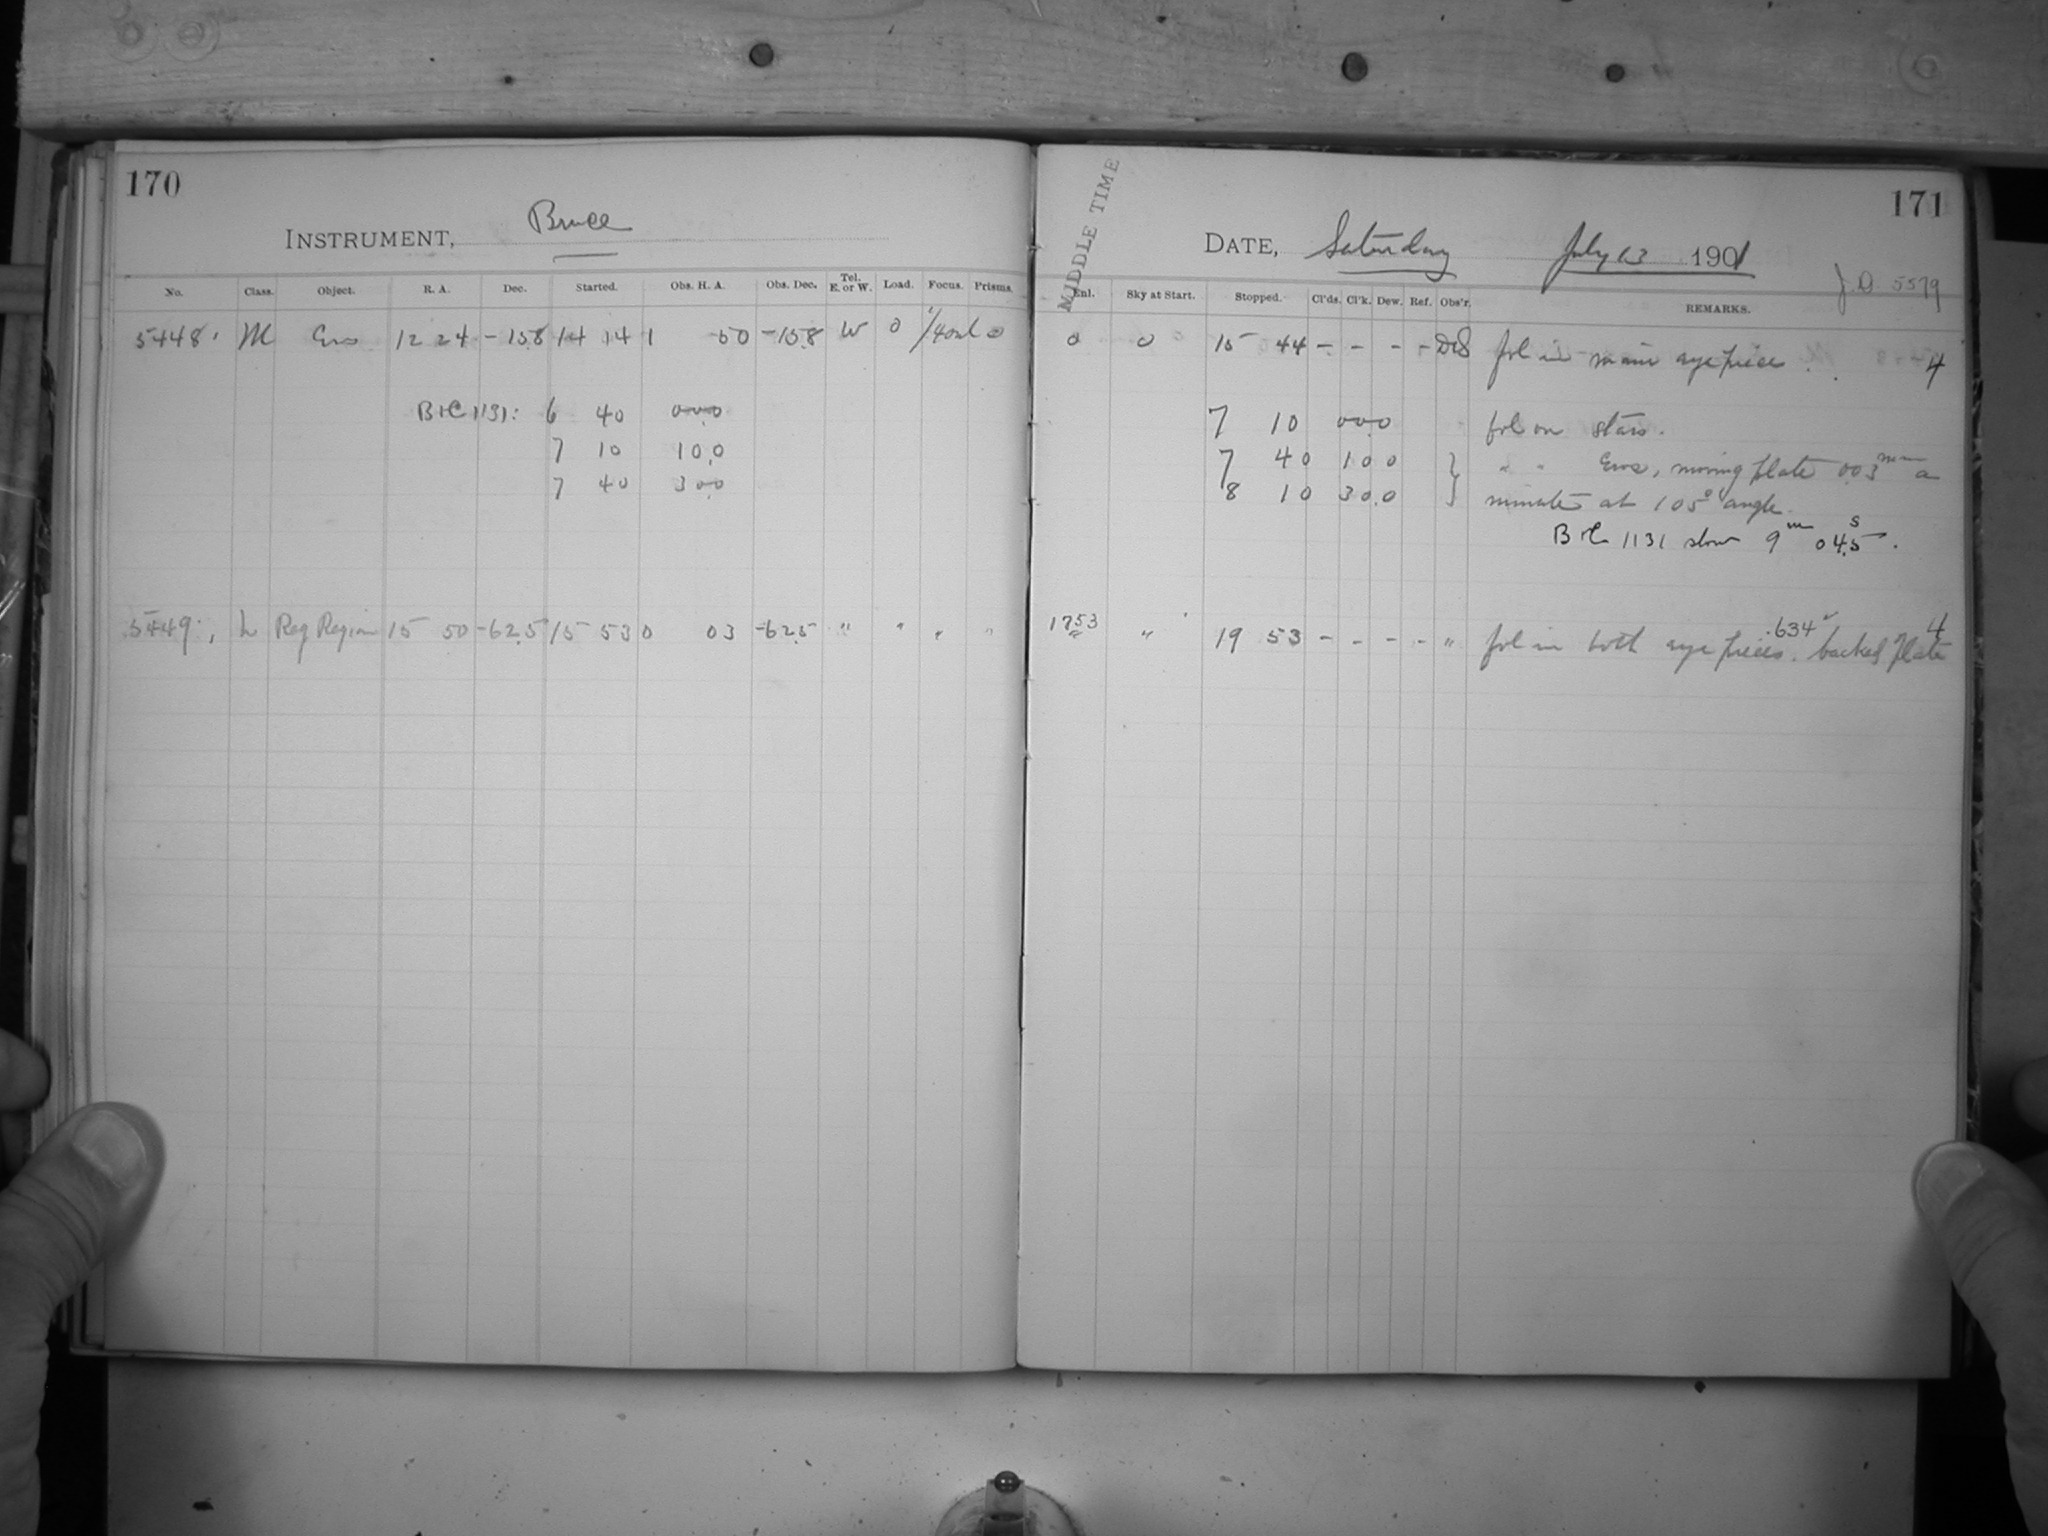 170
INSTRUMENT, Bruce
No. Class. Object. R. A. Dec. Started. Obs. H. A. Obs. Dec. Tel. E. or W. Load. Focus. Prisms.
5448. M Eros 12 24 -15.8 14 14 1 50 -15.8 W 0 0
B&C 1131: 6 40 00.0
7 10 10.0
7 40 30.0
5449. L Reg Region 15 50 -62.5 15 53 0 03 -62.5 " " " "
MIDDLE TIME
171
DATE, Saturday July 13 1901
J.D. 5579
Enl. Sky at Start. Stopped. Cl'ds. Cl'k. Dew. Ref. Obs'r. REMARKS.
0 0 15 44 - - - - fol in main eye piece. 4
7 10 00.0 fol on stars.
7 40 10.0 } " " Eros, moving plate 0.03 mm a
8 10 30.0 } minute at 105° angle.
B&C 1131 slow 9m 04.5s.
1753 .634
" " 19 53 - - - - " fol in both eye pieces. backed plate 4